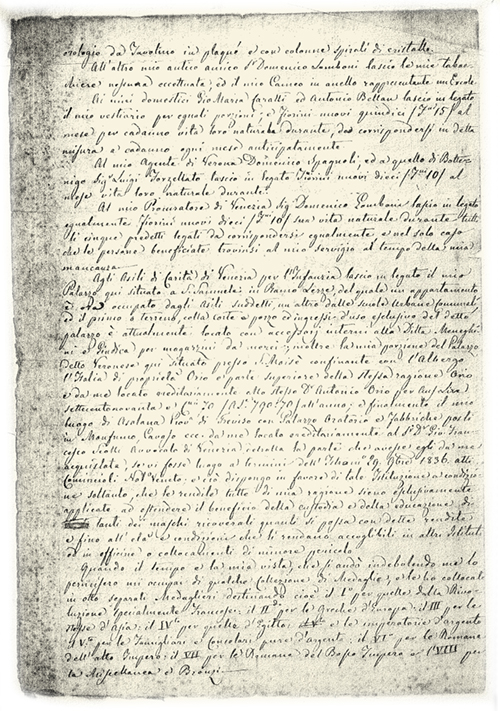 orologio da Tavolino in plaquè e con colonne spirali di cristallo.
All'altro mio antico amico S.r Domenico Zamboni lascio le mie tabac
chiere nessuna eccettuata, ed il mio Cameo in anello rappresentante un Ercole.
Ai miei domestici Gio Maria Cavalli ed Antonio Bellan lascio in legato
il mio vestiario per eguali porzioni; e fiorini nuovi quindici [f.ni 15] al
mese per cadauno vita loro naturale durante, da corrispondersi in detta
misura e cadauno ogni mese anticipatamente.
Al mio Agente di Verona Domenico Spagnoli, ed a quello di
Sig.r Luigi lascio in legato fiorini nuovi dieci [f.ni 10] al
mese vita loro naturale durante.
Al mio Procuratore di Venezia Sig. Domenico lascio in legato
egualmente fiorini nuovi dieci [f.ni 10] sua vita naturale durante tutti
li cinque predetti legati da corrispondersi egualmente, e nel solo caso
che le persone beneficiate trovinsi al mio servigio al tempo della mia
mancanza.
Agli Asili di Carità di Venezia per l'Infanzia lascio in legato il mio
Palazzo qui situato a S. Samuele in Ramo del quale un appartamento
è occupato dagli Asili suddetti, un altro dalle Scuole Urbane Comunali
ed il primo a terreno, colla corte a pozzo ed ingressi d'uso esclusivo del detto
palazzo è attualmente locato con accessori interni alla Ditta
e Pindica per magazzini da merci; inoltre la mia porzione del Palazzo
detto Veronese qui situato presso S. Moisè confinante con l'Albergo
l'Italia di proprietà Orio e parte superiore alla stessa ragione Orio
e da me locato ereditariamente allo stesso D.r Antonio Orio per
settecentonovanta e C.mi 70 [790:70] all'anno: e finalmente il mio
luogo di Asolana Prov. di Treviso con Palazzo Oratorio e Fabbriche posti
in Monfumo, Cavaso ecc. da me locato ereditariamente al S.r D.r Gio: Fran
cesco Avvocato di Venezia
acquistata, se vi fosse luogo a termini dell' 29 9bre 1836. atti
Comincioli Not.o Veneto; e ciò dispongo in favore di tale Istituzione a condizio
ne soltanto, che le rendite tutte di mia ragione sieno esclusivamente
applicate ad estendere il beneficio della custodia e della educazione di
tanti dei maschi ricoverati quanti si possa con dette rendite
e fino all'età e condizione che li rendano accoglibili in altri Istituti
od in officine o collocamenti di minore pericolo.
Quando il tempo e la mia vista, che si andò indebolendo me lo
permisero mi occupai di qualche Collezione di Medaglie, e le ho collocate
in otto separati Medaglieri destinando cioè il I.o per quelle della Rivo
luzione specialmente Francese: il II.do per le Greche d'Europa: il III per le
stesse d'Asia: il IV.to per quelle d'Egitto e le imperatorie d'argento
il V.to per le Famigliari e Consolari pure d'argento: il VI.to per le Romane
dell'alto Impero: il VII per le Romane del Basso Impero e l'VIII per
la Miscellanea e Bronzi.